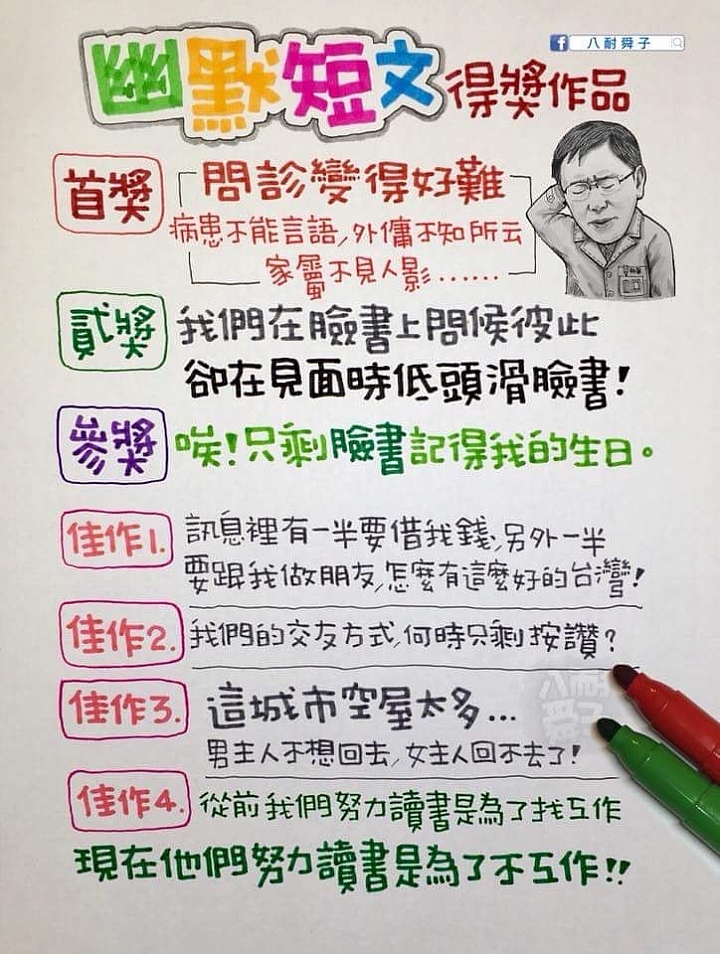 八耐舜子
幽默短文得獎作品
首獎
問診變得好難
病患不能言語,外傭不知所云
家屬不見人影......
貳獎
我們在臉書上問候彼此
卻在見面時低頭滑臉書!
參獎
唉!只剩臉書記得我的生日。
佳作1.
訊息裡有一半要借我錢,另外一半
要跟我做朋友,怎麼有這麼好的台灣!
佳作2.
我們的交友方式,何時只剩按讚?
佳作3.
這城市空屋太多...
男主人不想回去,女主人回不去了!
八耐
舜子
佳作4.
從前我們努力讀書是為了找工作
現在他們努力讀書是為了不工作!!